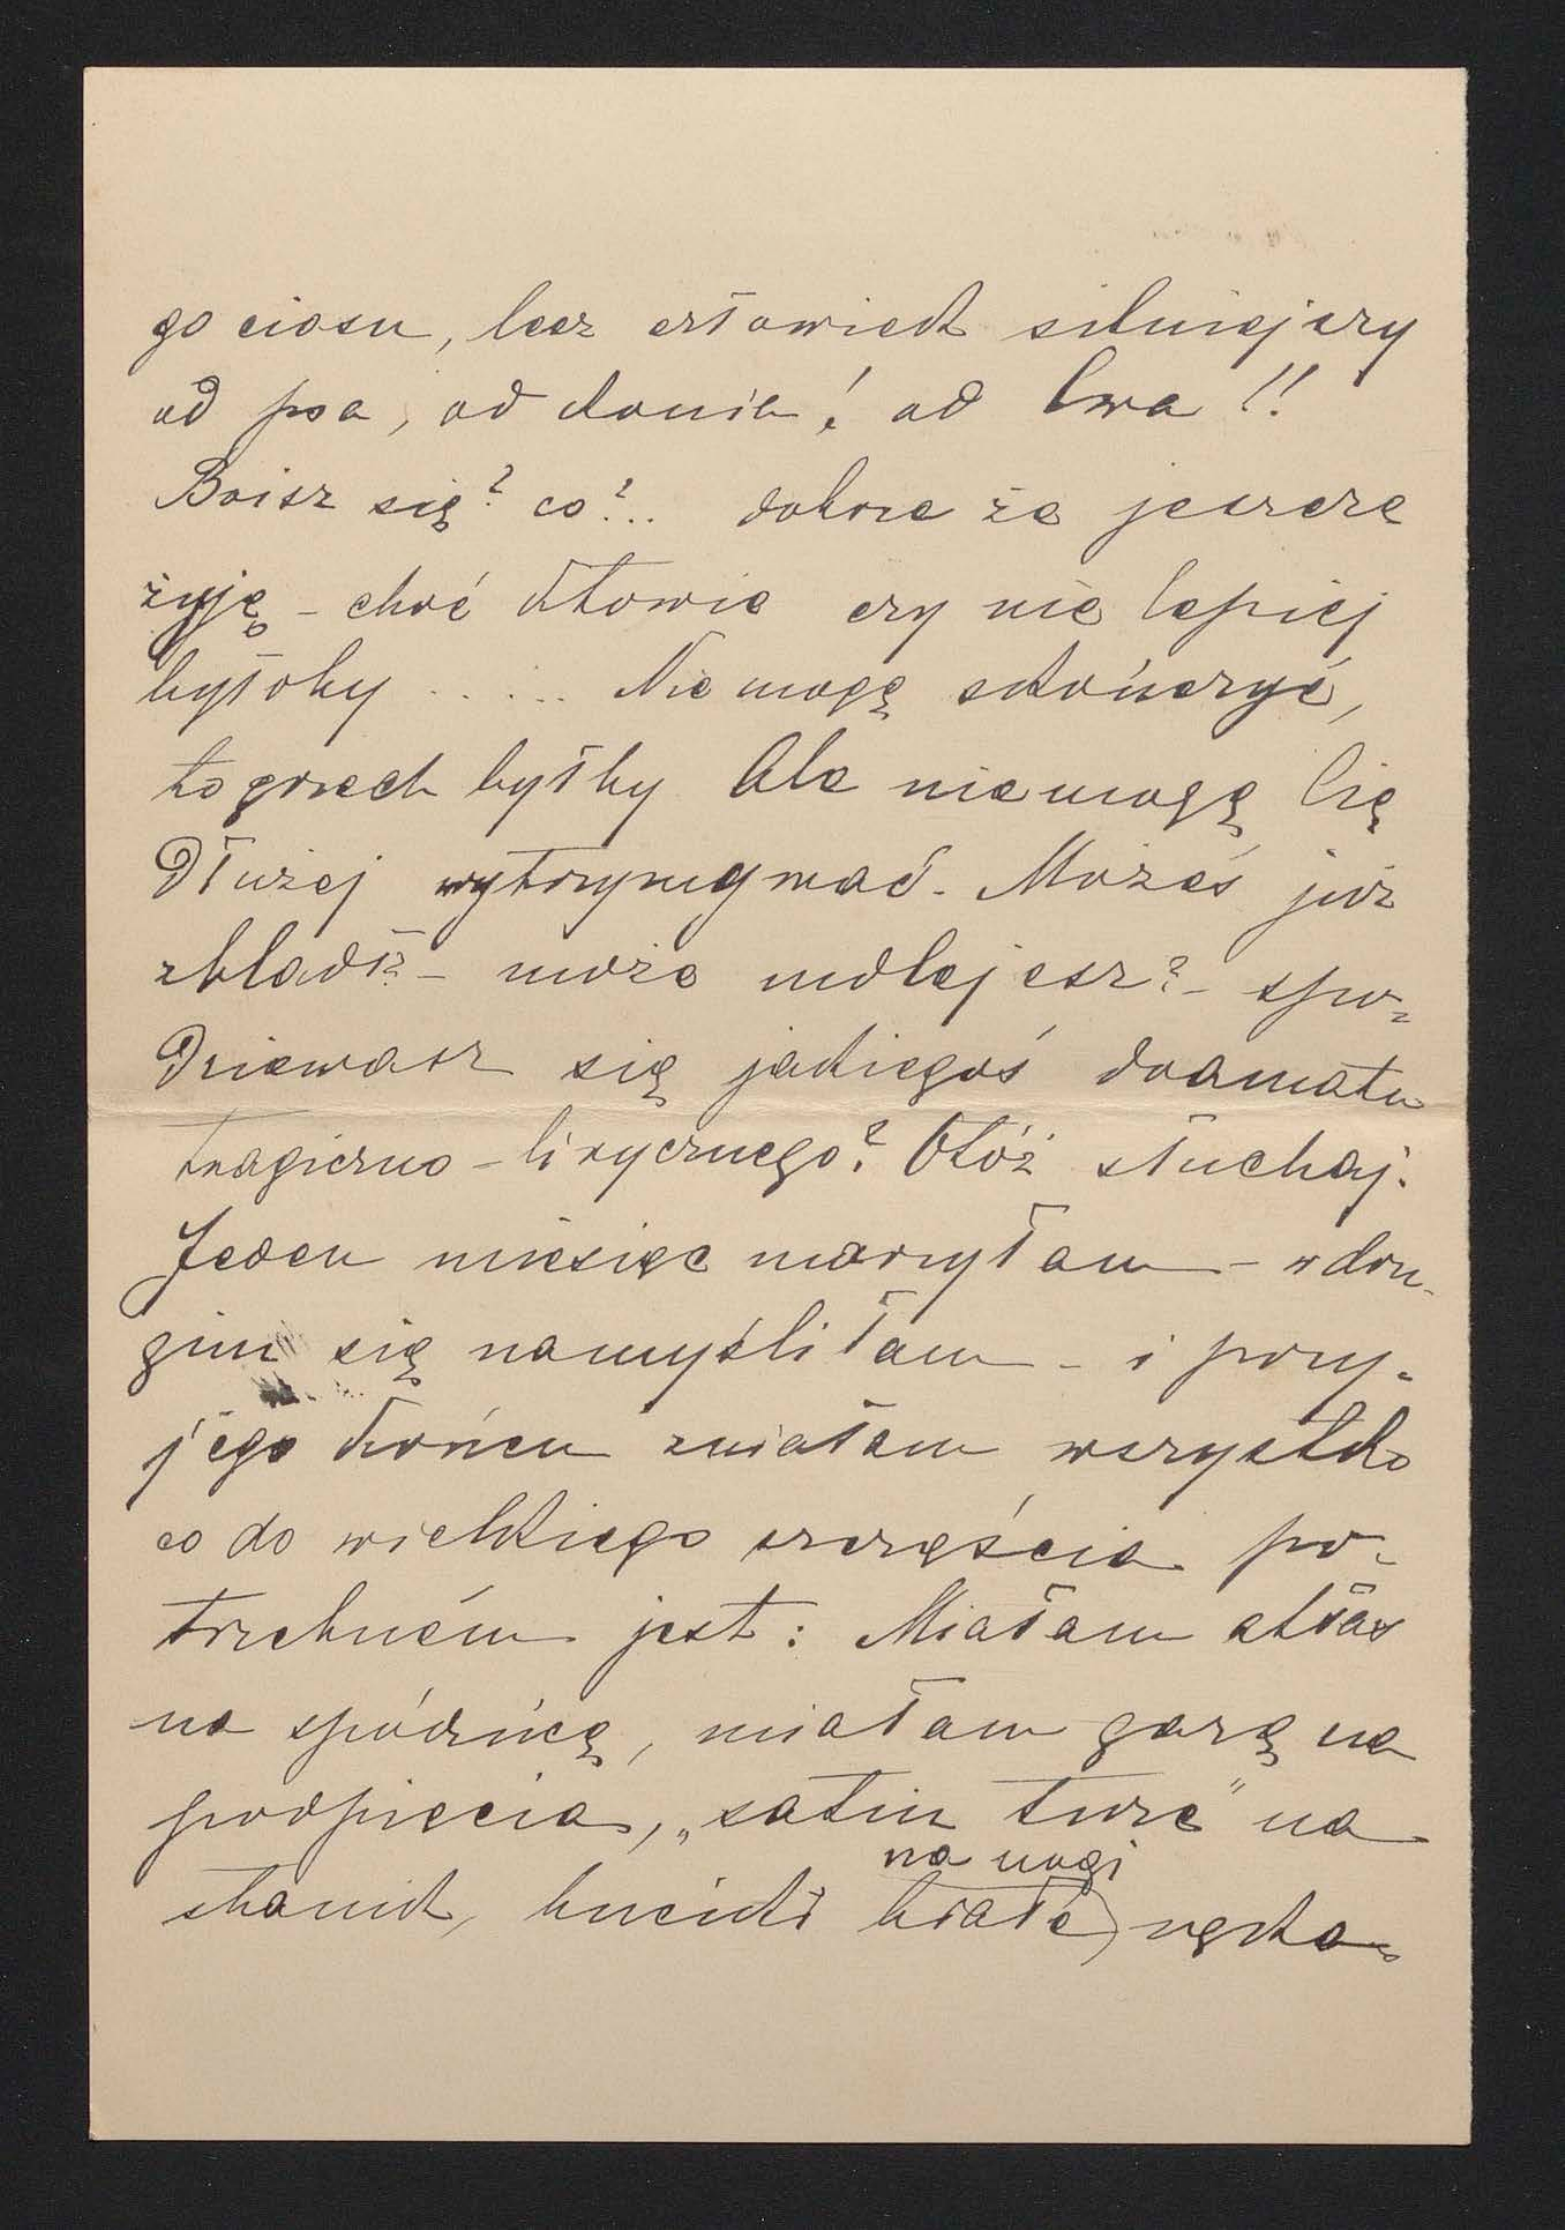 go ciosu, lecz człowiek silniejszy
od psa, od konia! od lwa!!
Boisz się? co?.. dobrze że jeszcze
żyję – choć ktowie czy nie lepiej
byłoby ..... Nie mogę skończyć,
to grzech byłby Ale niemogę Cię
dłużej wytrzymywać. Możeś już
zbladł? – może mdlejesz? – spo-
dziewasz się jakiegoś dramatu
tragiczno – lirycznego? Otóż słuchaj.
Jeden miesiąc marzyłam – w dru-
gim się namyśliłam – i przy
jego końcu miałam wszystko
co do wielkiego szczęścia po-
trzebném jest: Miałam atłas
na spódnicę, miałam gazę na
podpięcia, „satin turc" na
stanik, buciki białe na nogi, ręka-